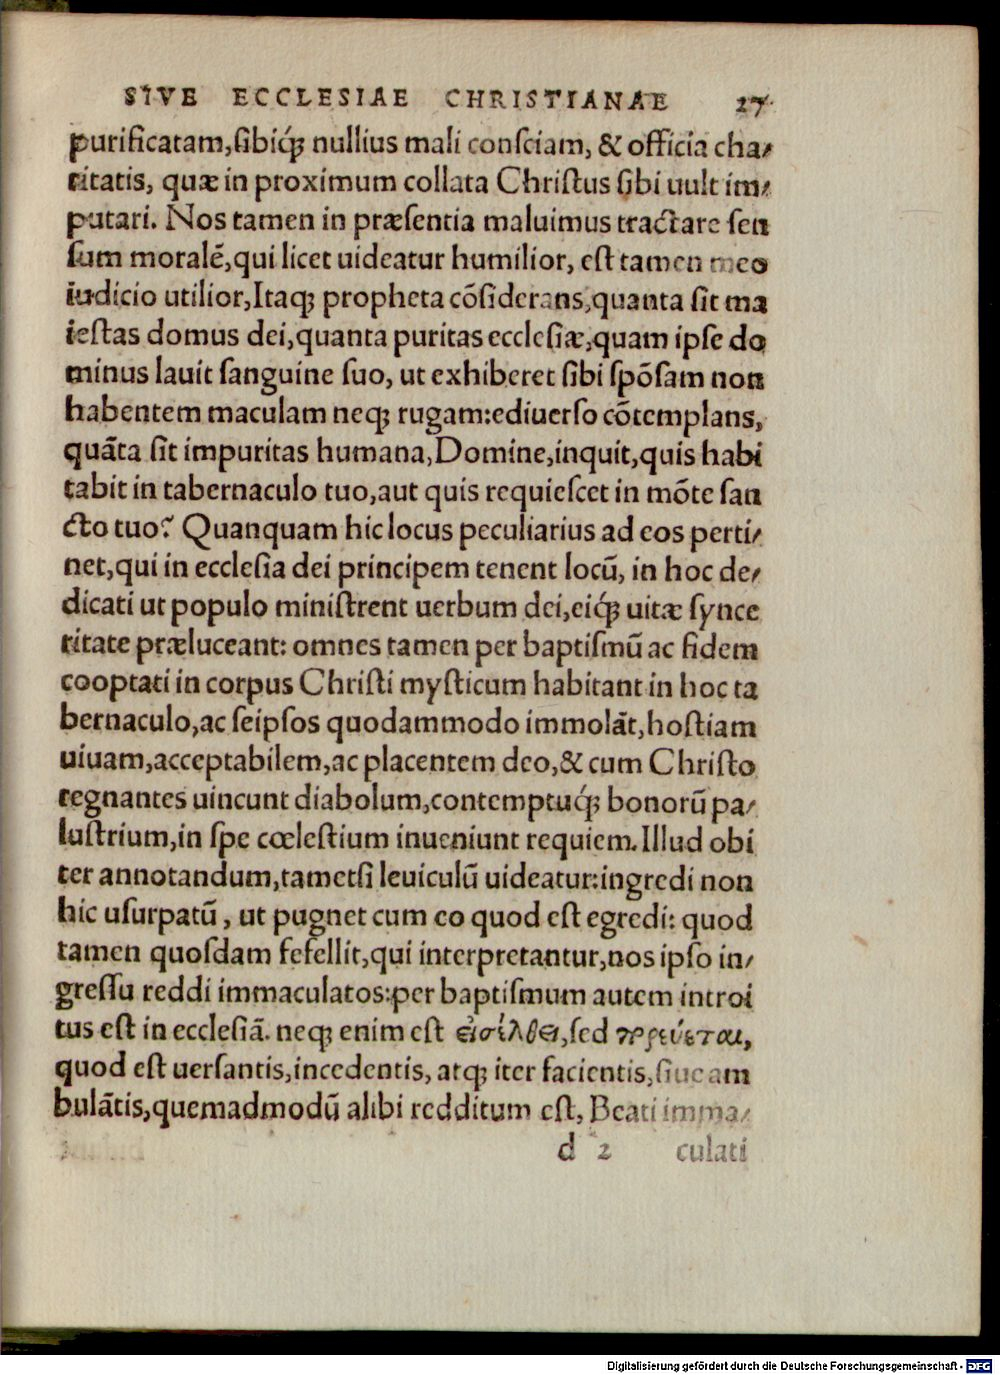 SIVE ECCLESIAE CHRISTIANAE 27
purificatam,ſibiq́ꝫ nullius mali conſciam, & officia cha-
ritatis, quæ in proximum collata Chriſtus ſibi uult im-
putari. Nos tamen in præſentia maluimus tractare ſen
ſum moralē,qui licet uideatur humilior, eſt tamen meo
iudicio utilior,Itaqꝫ propheta cōſiderans,quanta ſit ma
ieſtas domus dei,quanta puritas eccleſiæ,quam ipſe do
minus lauit ſanguine ſuo, ut exhiberet ſibi ſpōſam non
habentem maculam neqꝫ rugam:ediuerſo cōtemplans,
quāta ſit impuritas humana,Domine,inquit,quis habi
tabit in tabernaculo tuo,aut quis requieſcet in mōte ſan
cto tuo? Quanquam hic locus peculiarius ad eos perti-
net,qui in eccleſia dei principem tenent locū, in hoc de-
dicati ut populo miniſtrent uerbum dei,eiq́ꝫ uitæ ſynce
ritate præluceant: omnes tamen per baptiſmū ac fidem
cooptati in corpus Chriſti myſticum habitant in hoc ta
bernaculo,ac ſeipſos quodammodo immolāt,hoſtiam
uiuam,acceptabilem,ac placentem deo,& cum Chriſto
regnantes uincunt diabolum,contemptuq́ꝫ bonorū pa-
luſtrium,in ſpe cœleſtium inueniunt requiem. Illud obi
ter annotandum,tametſi leuiculū uideatur:ingredi non
hic uſurpatū, ut pugnet cum eo quod eſt egredi: quod
tamen quoſdam fefellit,qui interpretantur,nos ipſo in-
greſſu reddi immaculatos:per baptiſmum autem introi
tus eſt in eccleſiā. neqꝫ enim eſt εἰσέλθει,ſed πορεύεται,
quod eſt uerſantis,incedentis, atqꝫ iter facientis,ſiue am
bulātis,quemadmodū alibi redditum eſt, Beati imma-
d 2 culati
Digitalisierung gefördert durch die Deutsche Forschungsgemeinschaft - DFG